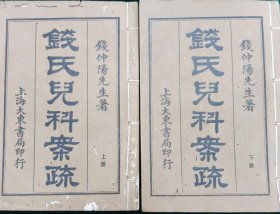 錢仲陽先生著
錢氏兒科案疏
上冊
上海大東書局印行
錢仲陽先生著
錢氏兒科案疏
下冊
上海大東書局印行